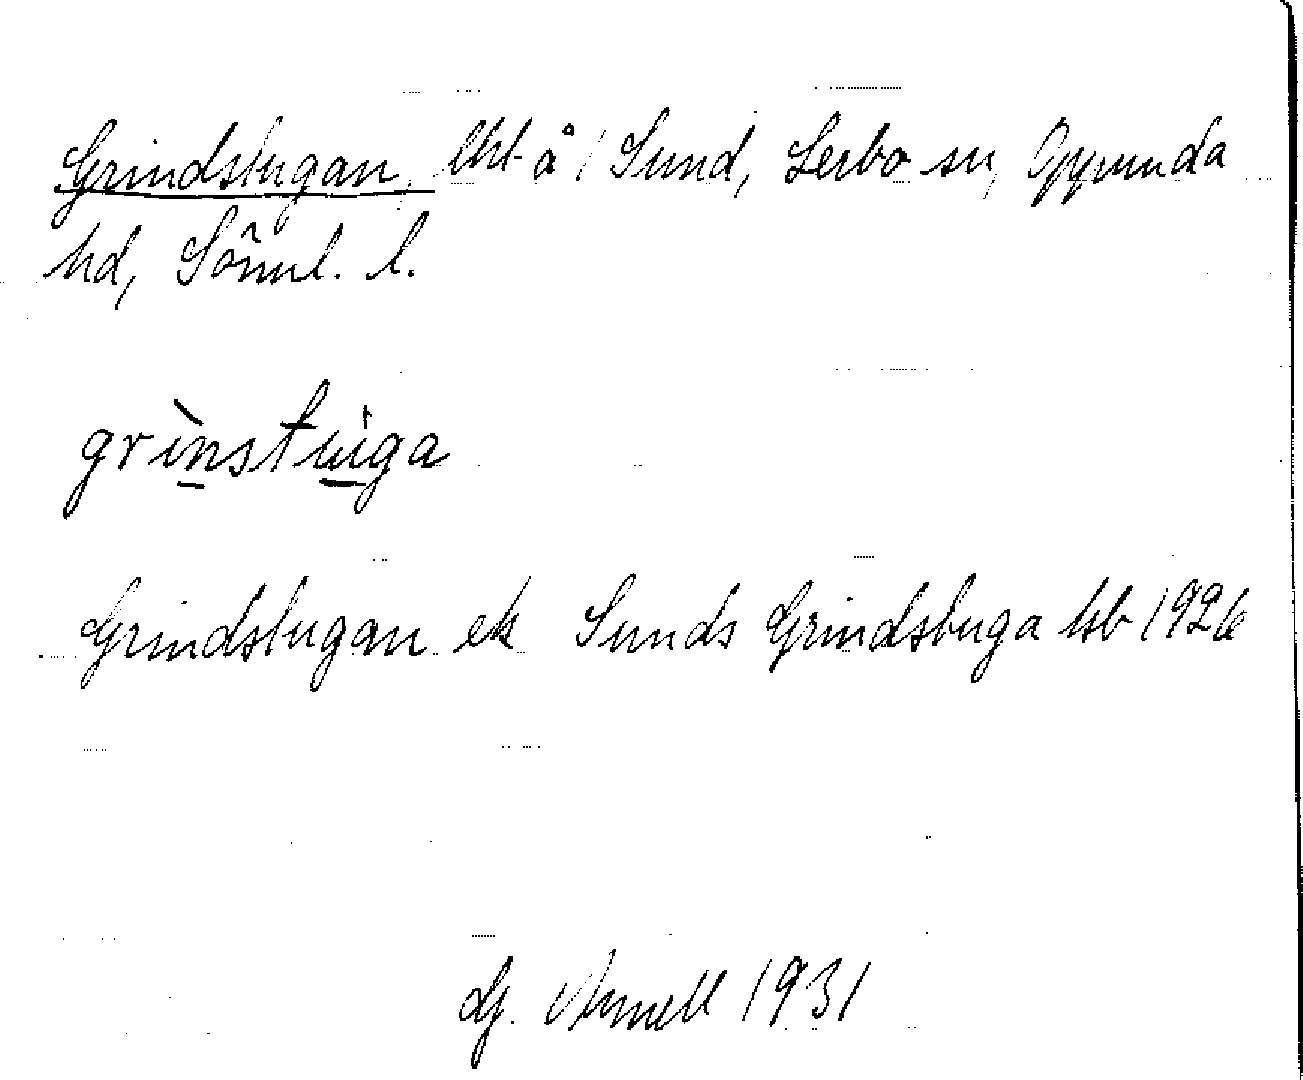 Grindstugan, lht å 1 Sund, Lerbo sn, Oppunda
hd, Sörml. l.
grìnstuga
Grindstugan ek Sunds Grindstuga hb 1926
Lj. Arnell 1931